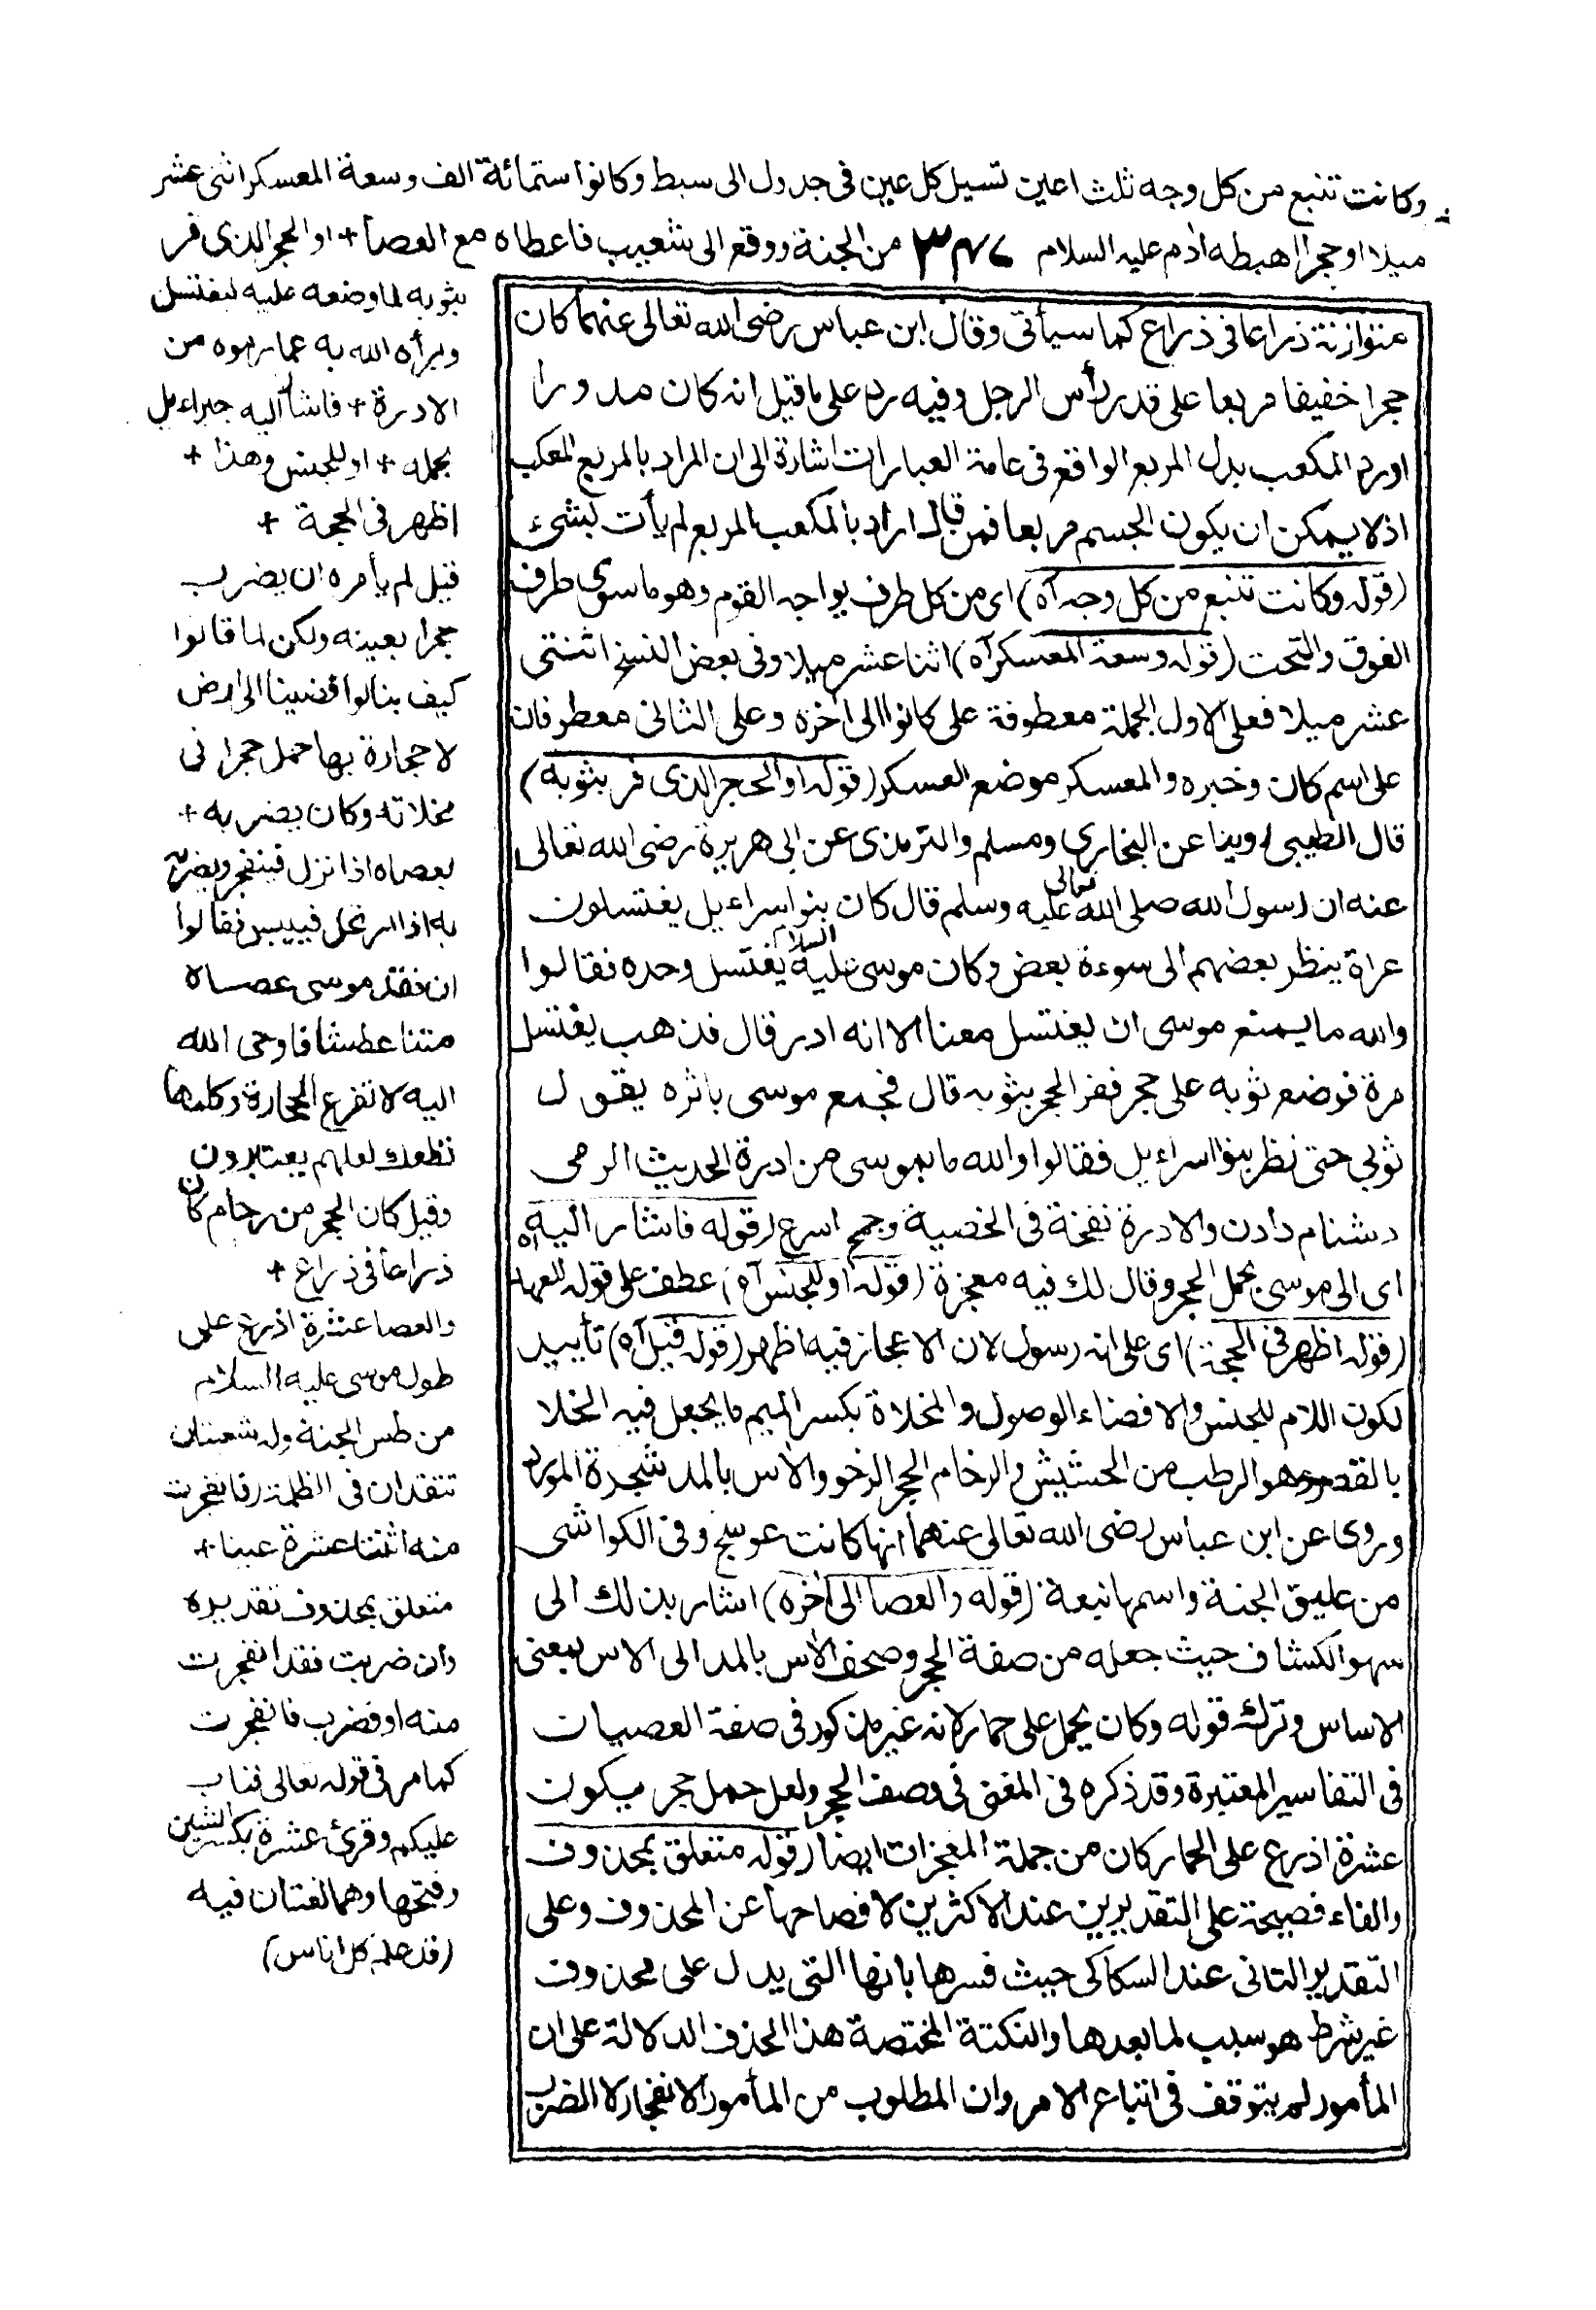 وكانت تنبع من كل وجه ثلث اعين تسيل كل عين فى جدول الى سبط وكانوا ستمائة الف وسعة المعسكر اثنى عشر
ميلا او حجرا اهبطه ادم عليه السلام ٣٤٧ من الجنة ووقع الى شعيب فاعطاه مع العصا + او الحجر الذى فر
بثوبه لما وضعه عليه ليغتسل
وبرأه الله به عما رموه من
الادرة + فاشار اليه جبراءيل
بحمله + او للجنس وهذا +
اظهر فى الحجة +
قيل لم يأمره ان يضرب
حجرا بعينه ولكن لما قالوا
كيف بنا لو افضينا الى ارض
لا حجارة بها حمل حجرا فى
مخلاته وكان يضربه +
بعصاه اذا نزل فينفجر ويضرب
به اذا ارتحل فييبس فقالوا
ان فقد موسى عصاه
متنا عطشا فاوحى الله
اليه لا تقرع الحجارة وكلمها
تطعك لعلهم يعتبرون
وقيل كان الحجر من رخام كان
ذراعا فى ذراع +
والعصا عشرة اذرع على
طول موسى عليه السلام
من طس الجنة وله شعبتان
تتقدان فى الظلمة فانفجرت
منه اثنتا عشرة عينا +
متعلق بمحذوف تقديره
فان ضربت فقد انفجرت
منه او فضرب فانفجرت
كما مر فى قوله تعالى فتاب
عليكم وقرئ عشرة بكسر الشين
وفتحها وهما لغتان فيه
(قد علم كل اناس)
متوازنة ذراعا فى ذراع كما سيأتى وقال ابن عباس رضى الله تعالى عنهما كان
حجرا خفيفا مربعا على قدر رأس الرجل وفيه رد على ما قيل انه كان مدورا
اورد المكعب بدل المربع الواقع فى عامة العبارات اشارة الى ان المراد بالمربع المكعب
اذ لا يمكن ان يكون الجسم مربعا فمن قال اراد بالمكعب المربع لم يأت بشىء
(قوله وكانت تنبع من كل وجه آه) اى من كل طرف يواجه القوم وهو ما سوى طرف
الفوق والتحت (قوله وسعة المعسكر آه) اثنا عشر ميلا وفى بعض النسخ اثنتى
عشر ميلا فعلى الاول الجملة معطوفة على كانوا الى آخره وعلى الثانى معطوفان
على اسم كان وخبره والمعسكر موضع العسكر (قوله او الحجر الذى فر بثوبه)
قال الطيبى روينا عن البخارى ومسلم والترمذى عن ابى هريرة رضى الله تعالى
عنه ان رسول الله صلى الله تعالى عليه وسلم قال كان بنو اسراءيل يغتسلون
عراة ينظر بعضهم الى سوءة بعض وكان موسى عليه السلام يغتسل وحده فقالوا
والله ما يمنع موسى ان يغتسل معنا الا انه ادر قال فذهب يغتسل
مرة فوضع ثوبه على حجر ففر الحجر بثوبه قال فجمع موسى باثره يقول
ثوبى حتى نظر بنو اسراءيل فقالوا والله ما بموسى من ادرة الحديث الرمى
دشنام دادن والادرة نفخة فى الخصية وجمح اسرع (قوله فاشار اليه آه
اى الى موسى بحمل الحجر وقال لك فيه معجزة (قوله او للجنس آه) عطف على قوله للعهد
(قوله اظهر فى الحجة) اى على انه رسول لان الاعجاز فيه اظهر (قوله قيل آه) تأييد
لكون اللام للجنس والافضاء الوصول والمخلاة بكسر الميم ما يجعل فيه الخلا
بالقصر وهو الرطب من الحشيش والرخام الحجر الرخو والآس بالمد شجرة المورد
وروى عن ابن عباس رضى الله تعالى عنهما انها كانت عوسج وفى الكواشى
من عليق الجنة واسمها نبعة (قوله والعصا الى آخره) اشار بذلك الى
سهو الكشاف حيث جعله من صفة الحجر وصحف الآس بالمد الى الاس بمعنى
الاساس وترك قوله وكان يحمل على حمار لانه غير مذكور فى صفة العصيات
فى التفاسير المعتبرة وقد ذكره فى المغنى فى وصف الحجر ولعل حمل حجر يكون
عشرة اذرع على الحمار كان من جملة المعجزات ايضا (قوله متعلق بمحذوف
والفاء فصيحة على التقديرين عند الاكثرين لافصاحها عن المحذوف وعلى
التقدير الثانى عند السكاكى حيث فسرها بانها التى يدل على محذوف
غير شرط هو سبب لما بعدها والنكتة المختصة هذا الحذف الدلالة على ان
المأمور لم يتوقف فى اتباع الامر وان المطلوب من المأمور الانفجار لا الضرب